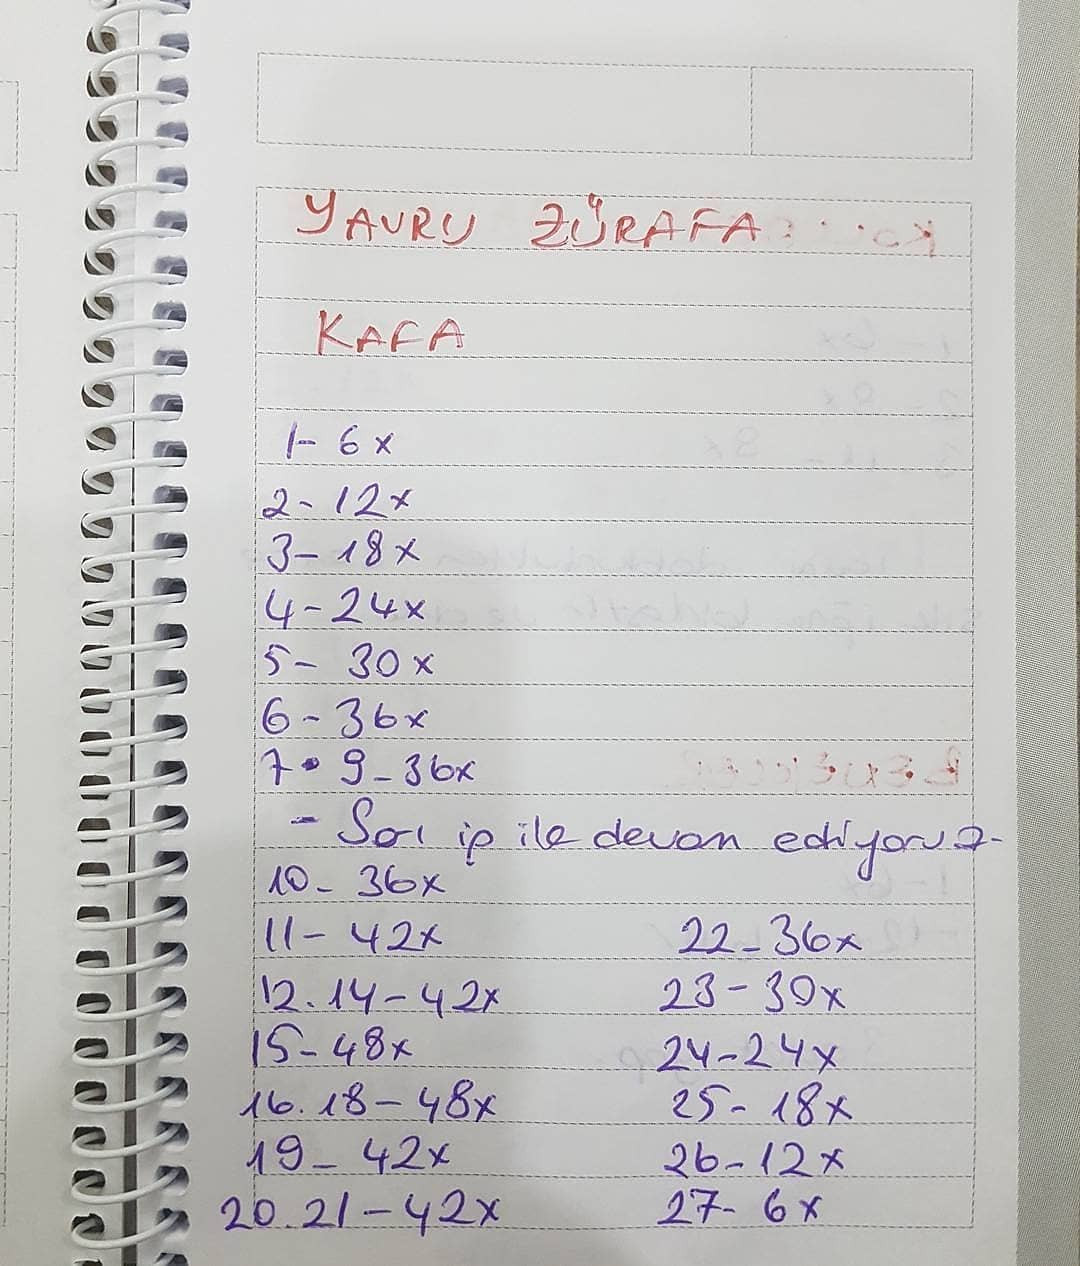 YAVRU ZÜRAFA
KAFA
1- 6x
2- 12x
3- 18x
4- 24x
5- 30x
6- 36x
7 • 9 - 36x
- Sarı ip ile devam ediyoruz-
10- 36x
11- 42x
12.14- 42x
15- 48x
16.18- 48x
19- 42x
20.21- 42x
22- 36x
23- 30x
24- 24x
25- 18x
26- 12x
27- 6x